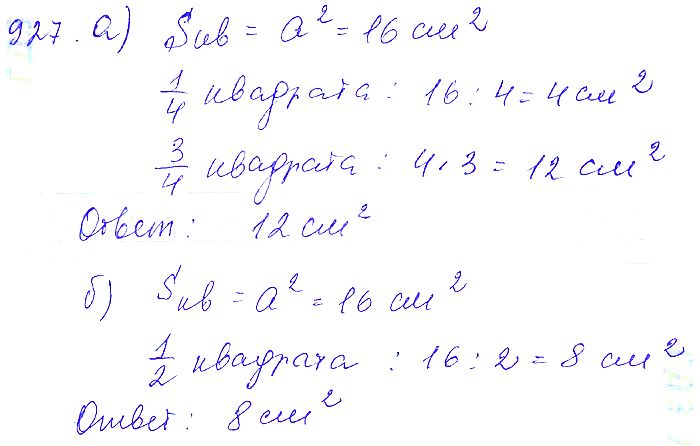 927. а) Sкв = a² = 16 см²
1/4 квадрата : 16 : 4 = 4 см²
3/4 квадрата : 4 · 3 = 12 см²
Ответ : 12 см²
б) Sкв = a² = 16 см²
1/2 квадрата : 16 : 2 = 8 см²
Ответ : 8 см²